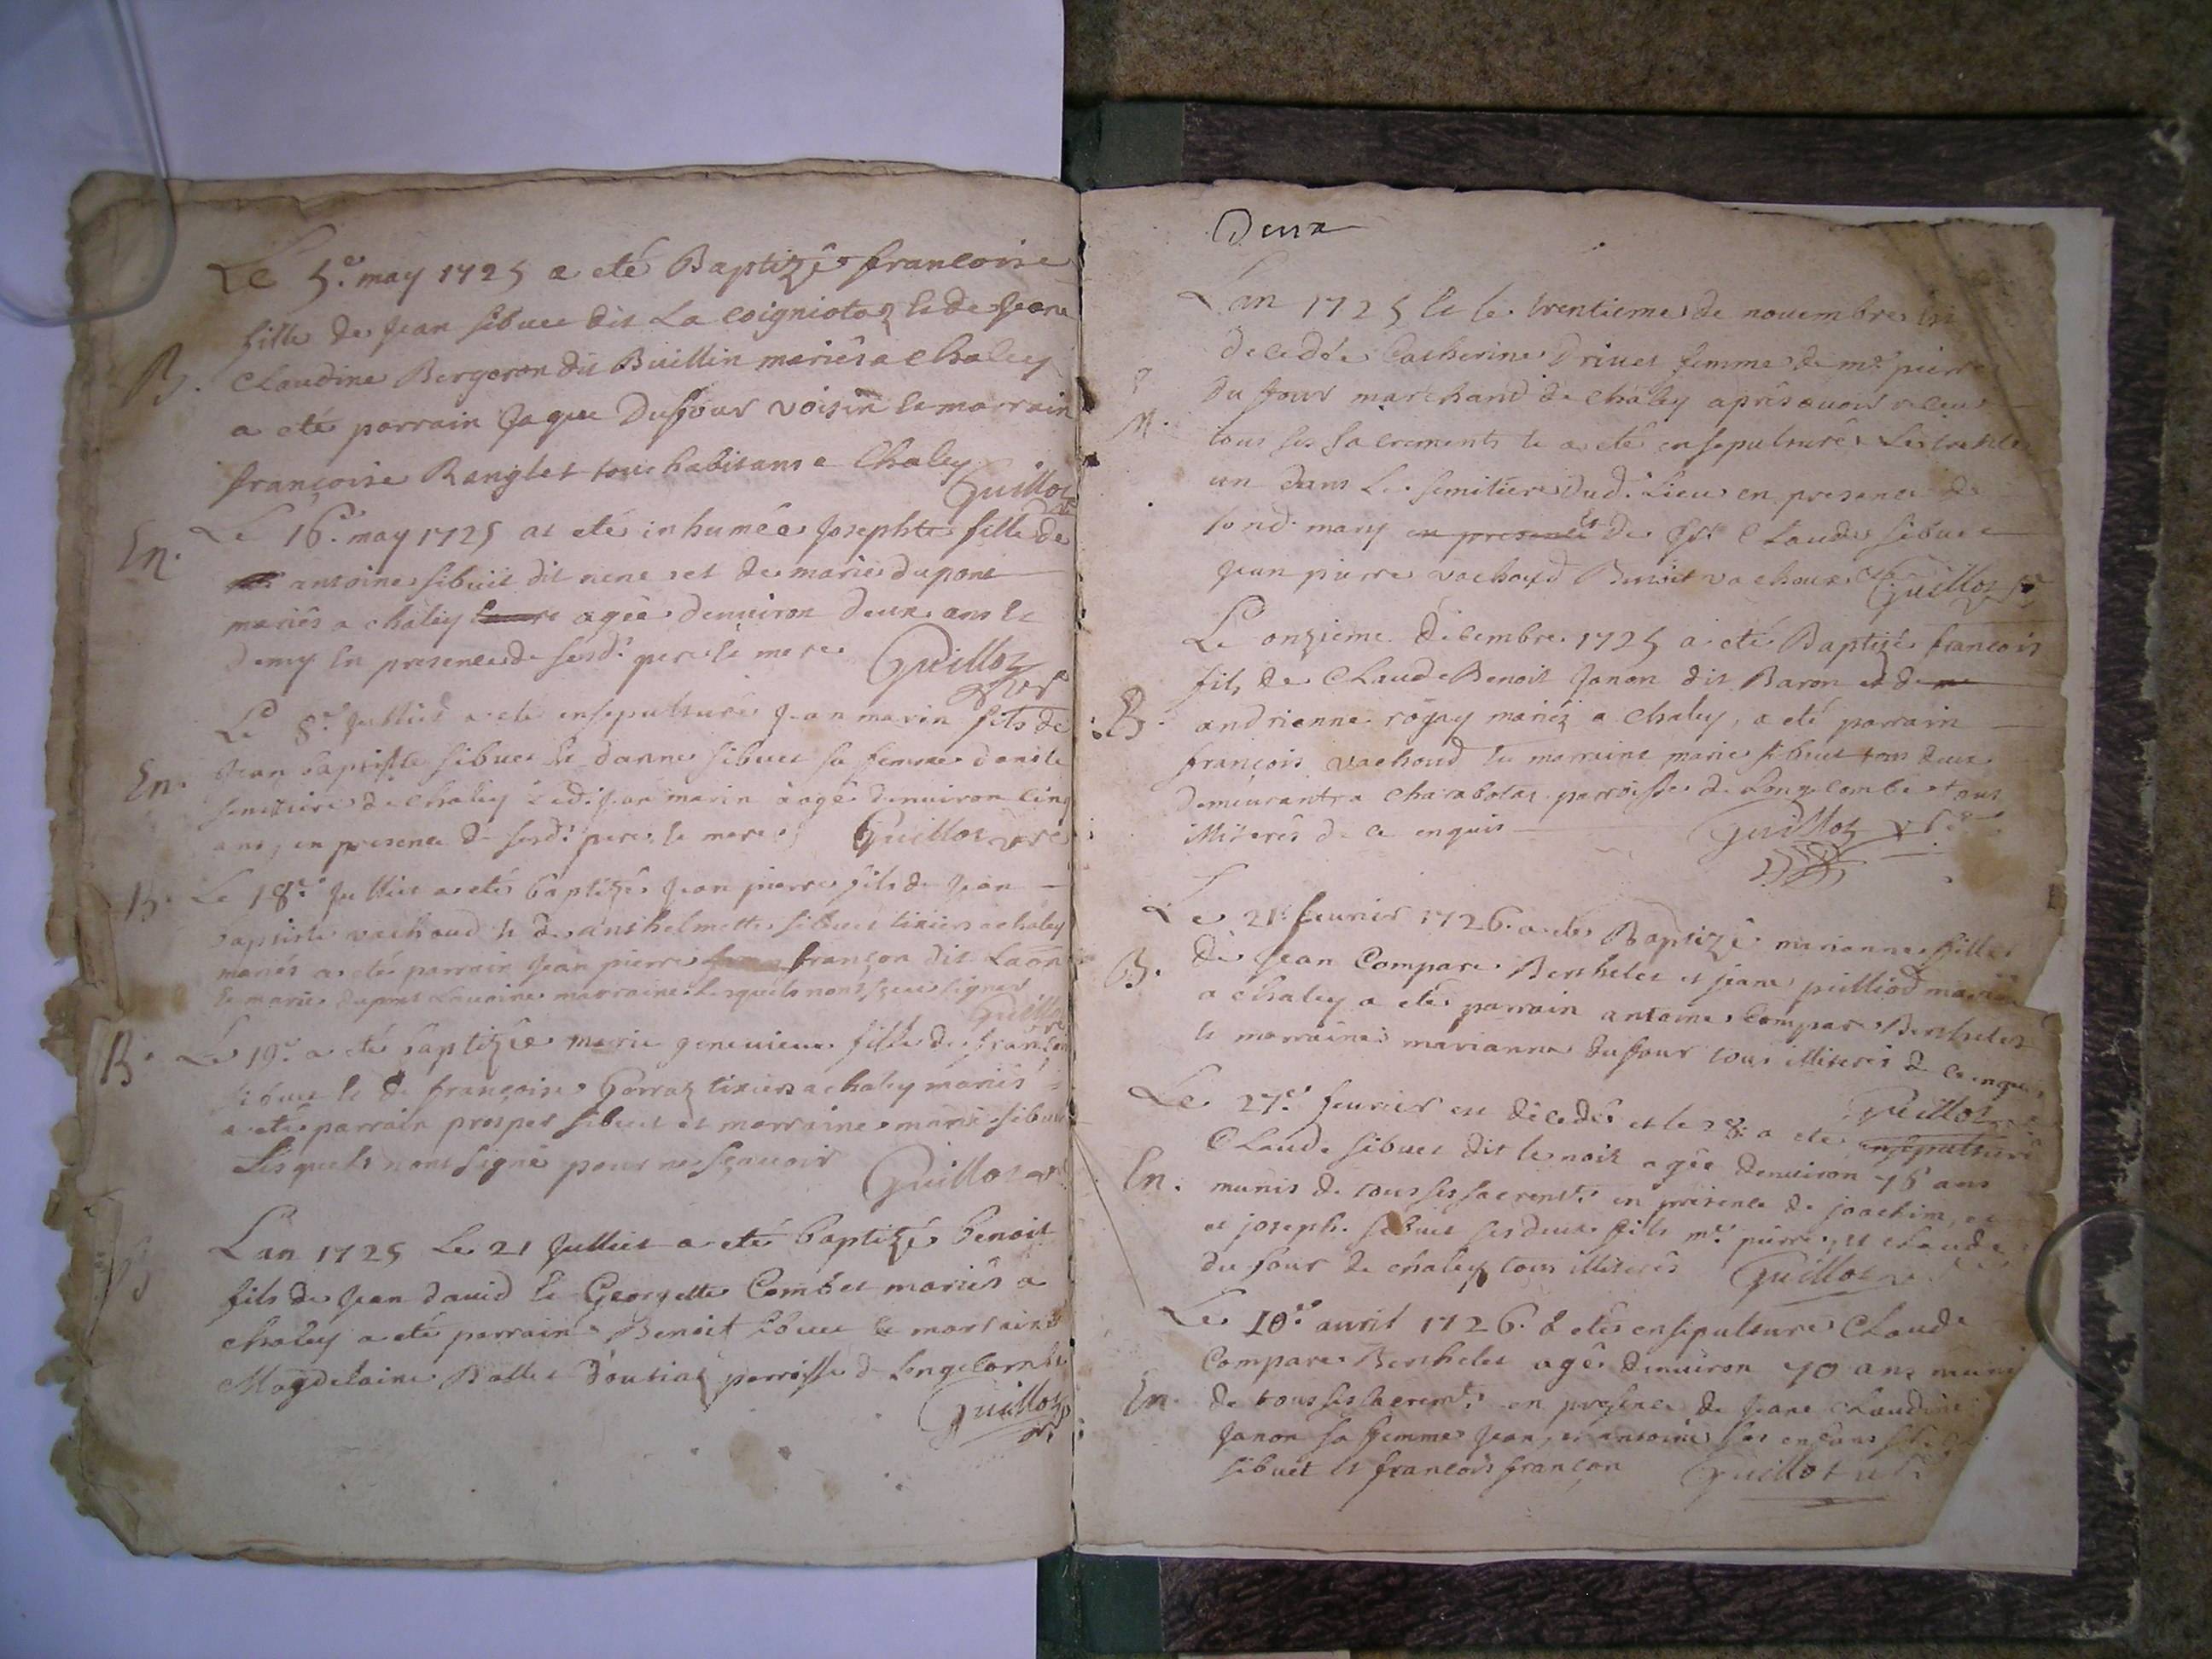 Le 5e. may 1725 a eté Baptizé francoise
fille de Jean sibuet dit La coigniotaz & de Jeane
B. Claudine Bergeron dit Buillin mariés a chaley
a eté parrain Jaque Dufour voisin & marrain
françoise Ranglet tous habitans a Chaley
Guilloz
En. Le 16e. may 1725 at eté inhumée Josephte fille de
antoine sibuit dit nene et de marie dupont
mariés a chaley agée denuiron deux ans &
demy En presence de sesd. pere & mere Guilloz
Le 8e. Julliet a eté ensepulturé Jean marin fils de
En. Jean baptiste sibuet & danne sibuet sa femme dans le
semitiere de chaley led. Jean marin agé denuiron cinq
ans, en presence de sesd. pere & mere Guilloz
B. Le 18e. Julliet a eté baptizé Jean pierre fils de Jean
baptiste vachoud & de anthelmette sibuet tixiers a chaley
mariés a eté parrain Jean pierre françon dit Laon
& marie dupont marraine lesquels nont sceu signer
Guilloz
B. Le 19e. a eté baptizée marie geneuieue fille de francois
sibuet & de françoise Gorraz tixiers a chaley mariés
a eté parrain prosper sibuet et marraine marie sibuet
Lesquels nont signé pour ne sçauoir Guilloz
B Lan 1725 Le 21 Julliet a eté baptizé benoit
fils de Jean dauid & Georgette Combet mariés a
chaley a eté parrain Benoit sibuet & marraine
Magdelaine Ballet d'outriaz parroisse de longecombe
Guilloz
Deux
Lan 1725 & le trentieme de nouembre est
decedée Catherine Driuet femme de me. pierre
du four marchand de chaley aprés auoir receu
tous ses sacrements & a eté ensepulturée Le trente
un dans le semitiere dud. Lieu en presence de
sond. mary en presence et de Claude sibuet
Jean pierre vachoud Benoit vachoux Guilloz
Le onzieme decembre 1725 a eté Baptizé francois
fils de Claude Benoit Janon dit Baron et de
B. andrienne rogay mariéz a chaley, a eté parrain
françois vachoud & marraine marie sibuet tous deux
demeurants a charabotaz parroisse de Longecombe tous
illiterés de ce enquis Guilloz
Le 21e. feurier 1726. a eté Baptizé marianne fille
B. de Jean Compare Berthelet et jeane pilliod mariés
a chaley a eté parrain antoine Compare Berthelet
& marraine marianne dufour tous illiterés de ce enquis
Guilloz
Le 27e. feurier est décedé et le 28. a eté ensepulturé
Claude sibuet dit le noir agée denuiron 76 ans
En. munis de tous ses sacremts. en présence de joachim, et
et joseph. sibuet ses deux fils me. pierre, et claude
du four de chaley tous illiterés Guilloz
Le 10e. auril 1726. a eté ensepulturé Claude
Compare Berthelet agé denuiron 70 ans muni
En. de tous ses sacremts. en presence de Jeane Claudine
Janon sa femme Jean, et antoine ses enfans
sibuet et francois françon Guilloz